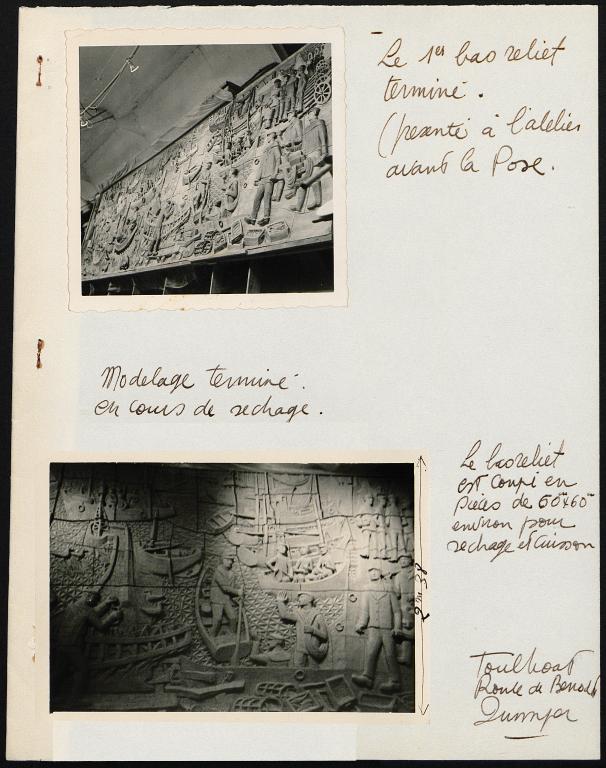 Le 1er bas relief
terminé.
(présenté à l'atelier
avant la Pose.
Modelage terminé.
en cours de sechage.
Le bas relief
est coupé en
pièces de 60x60
environ pour
sechage et cuisson
2m38
Toulhoat
Route de Benodet
Quimper